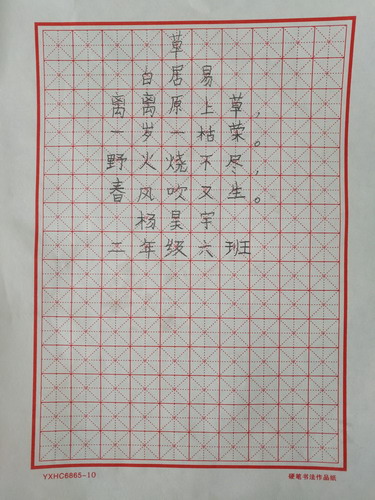 草
白居易
离离原上草，
一岁一枯荣。
野火烧不尽，
春风吹又生。
杨昊宇
二年级六班
YXHC6865-10
硬笔书法作品纸